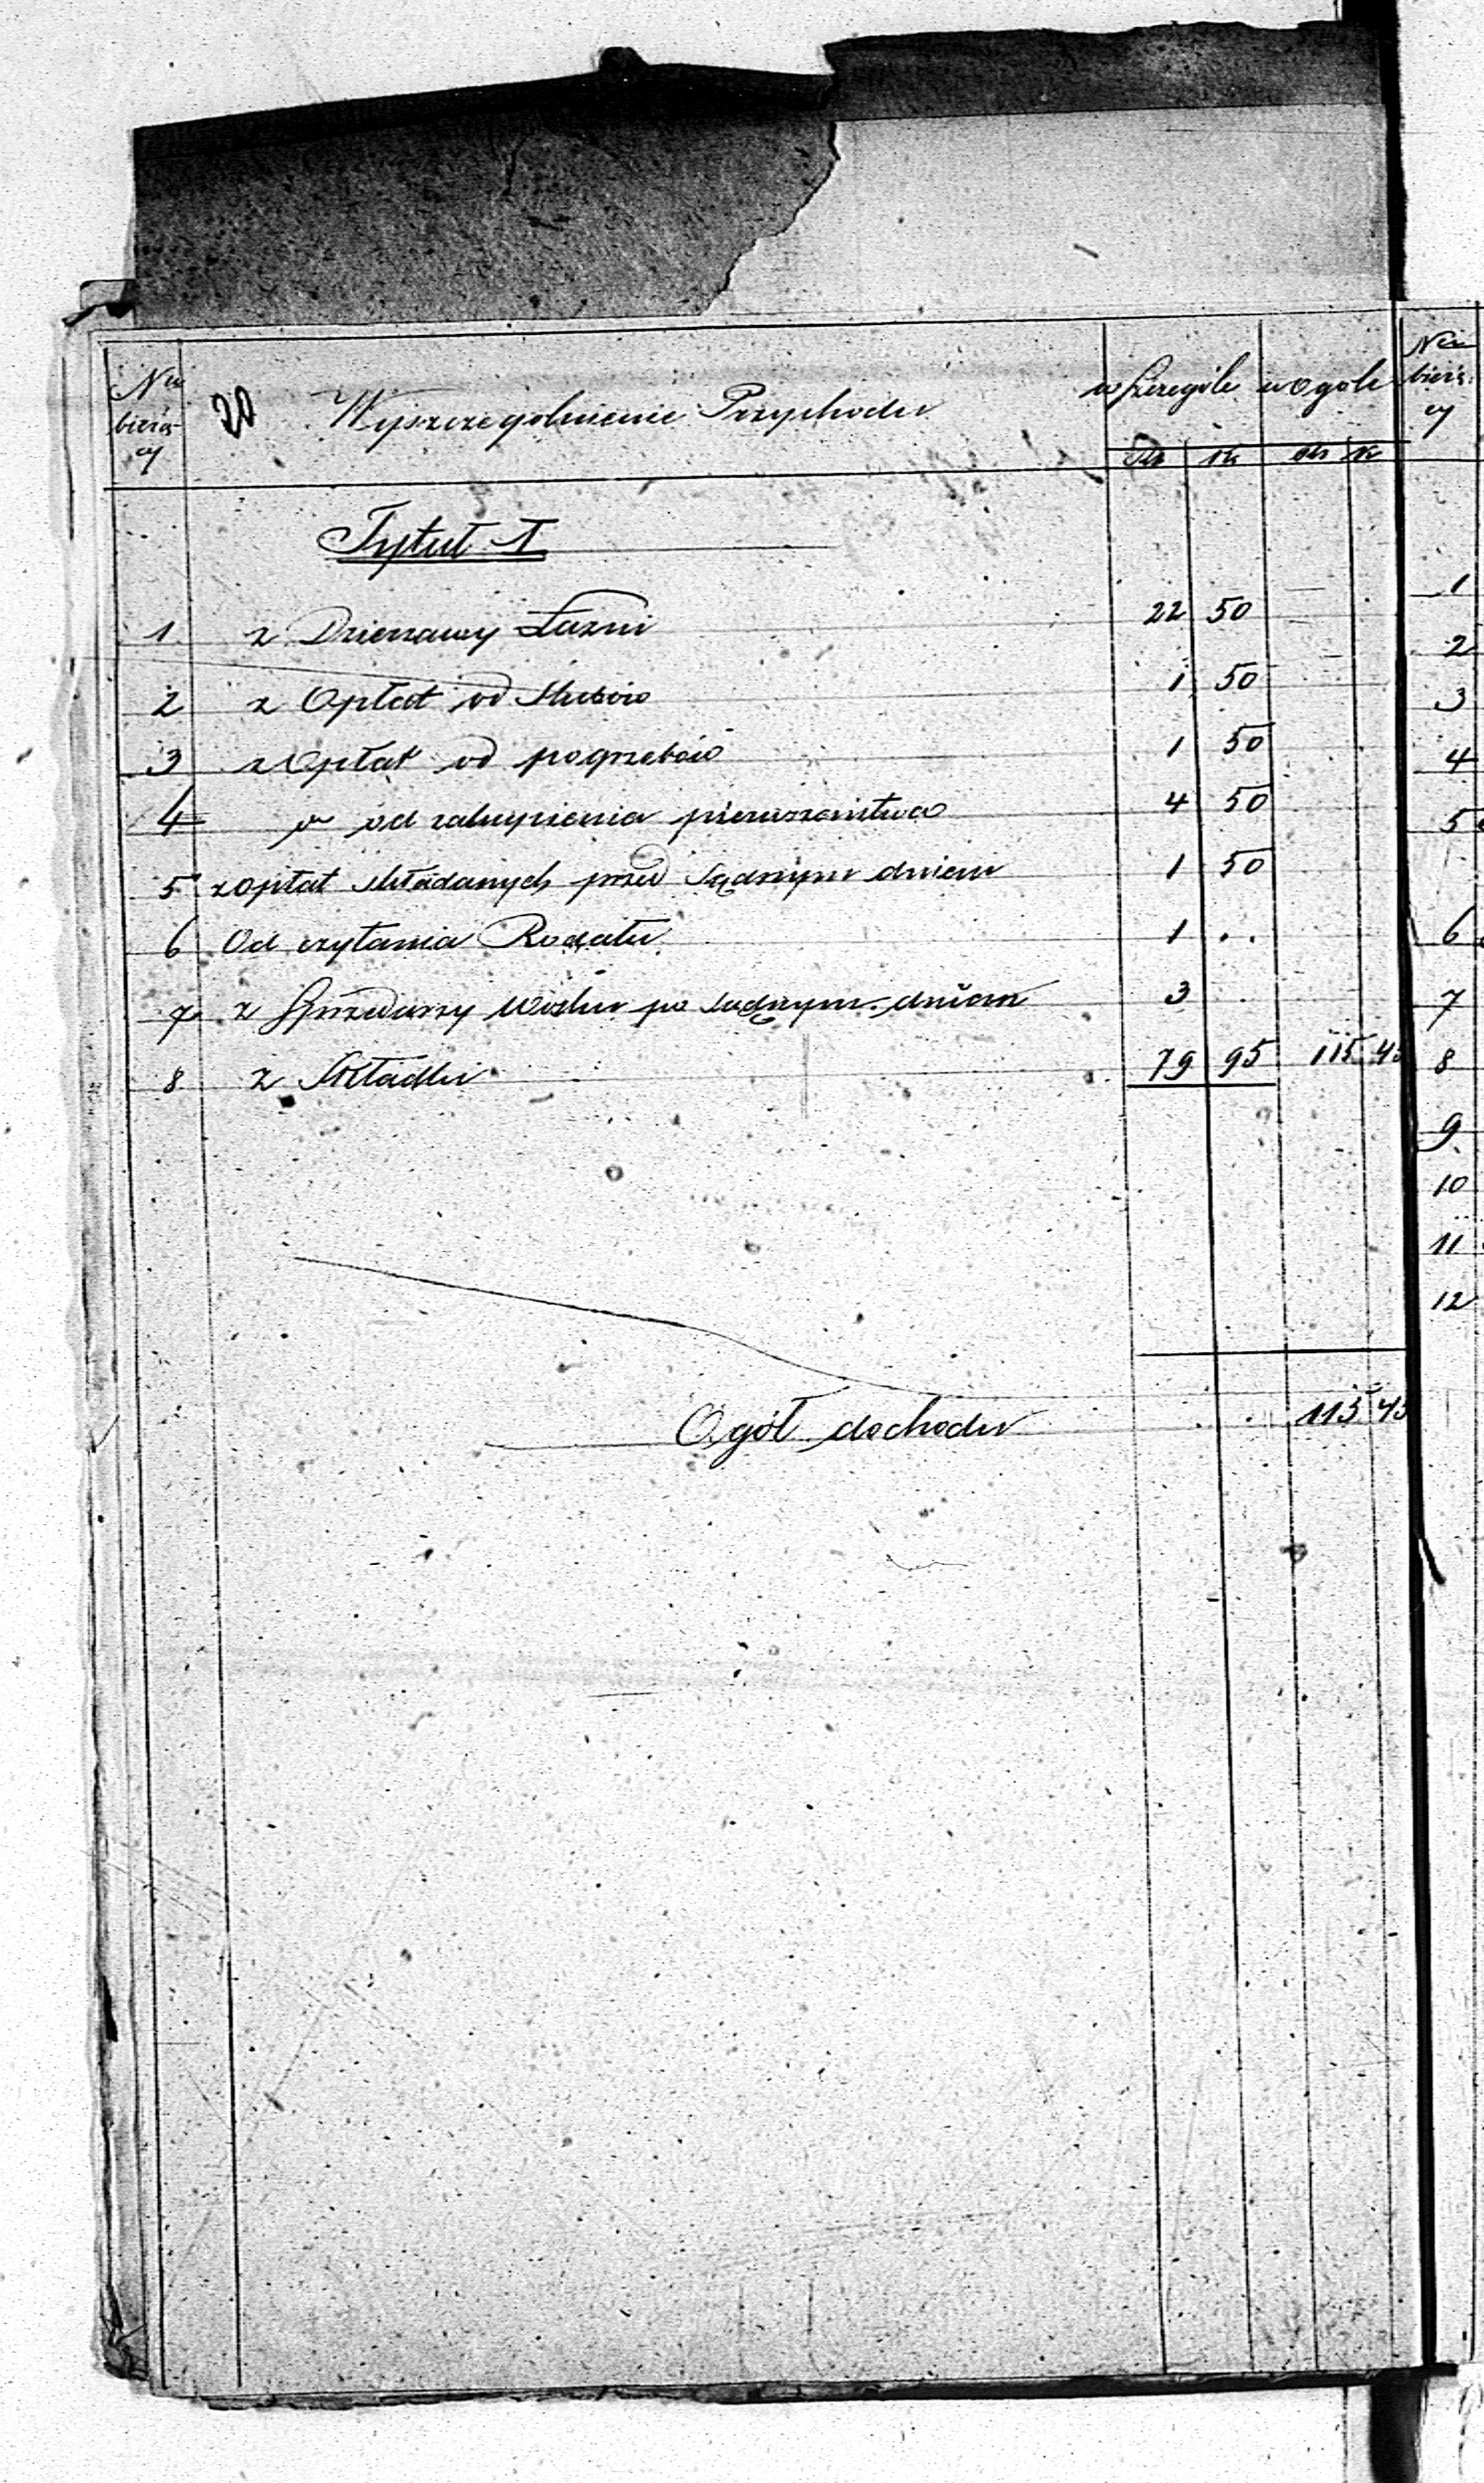 Nr bieżą- cy Wyszczegolnienie Przychodu w szczególe w ogole Nr bieżą- cy
Rb k Rb k
Tytuł I
1 z Dzierzawy Łazni 22 50
2 z Opłat od Slubów 1 50
3 z Opłat od pogrzebów 1 50
4 " od zakupienia pierwszenstwa 4 50
5 z opłat składanych przed Sądnym dniem 1 50
6 Od czytania Rodału 1 . .
7 z Sprzedarzy Wosku po Sądnym dniem 3 .
8 z Składki 79 95 115 45
Ogół dochodu . . 115 45
1
2
3
4
5
6
7
8
9
10
11
12